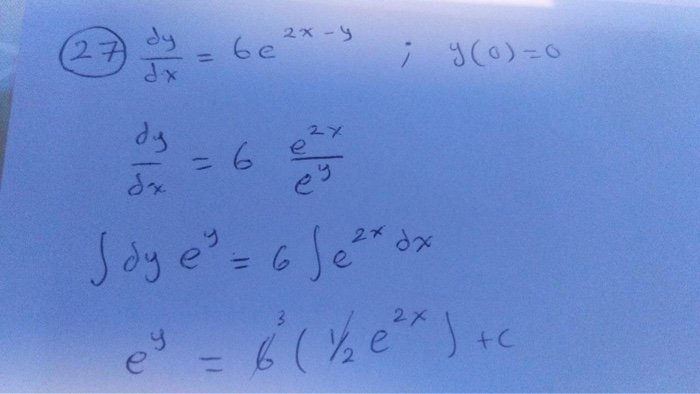 (27) dy/dx = 6e^{2x-y} ; y(0)=0
dy/dx = 6 e^{2x}/e^{y}
∫dy e^{y} = 6 ∫e^{2x} dx
e^{y} = 6^{3} (1/2 e^{2x}) +c